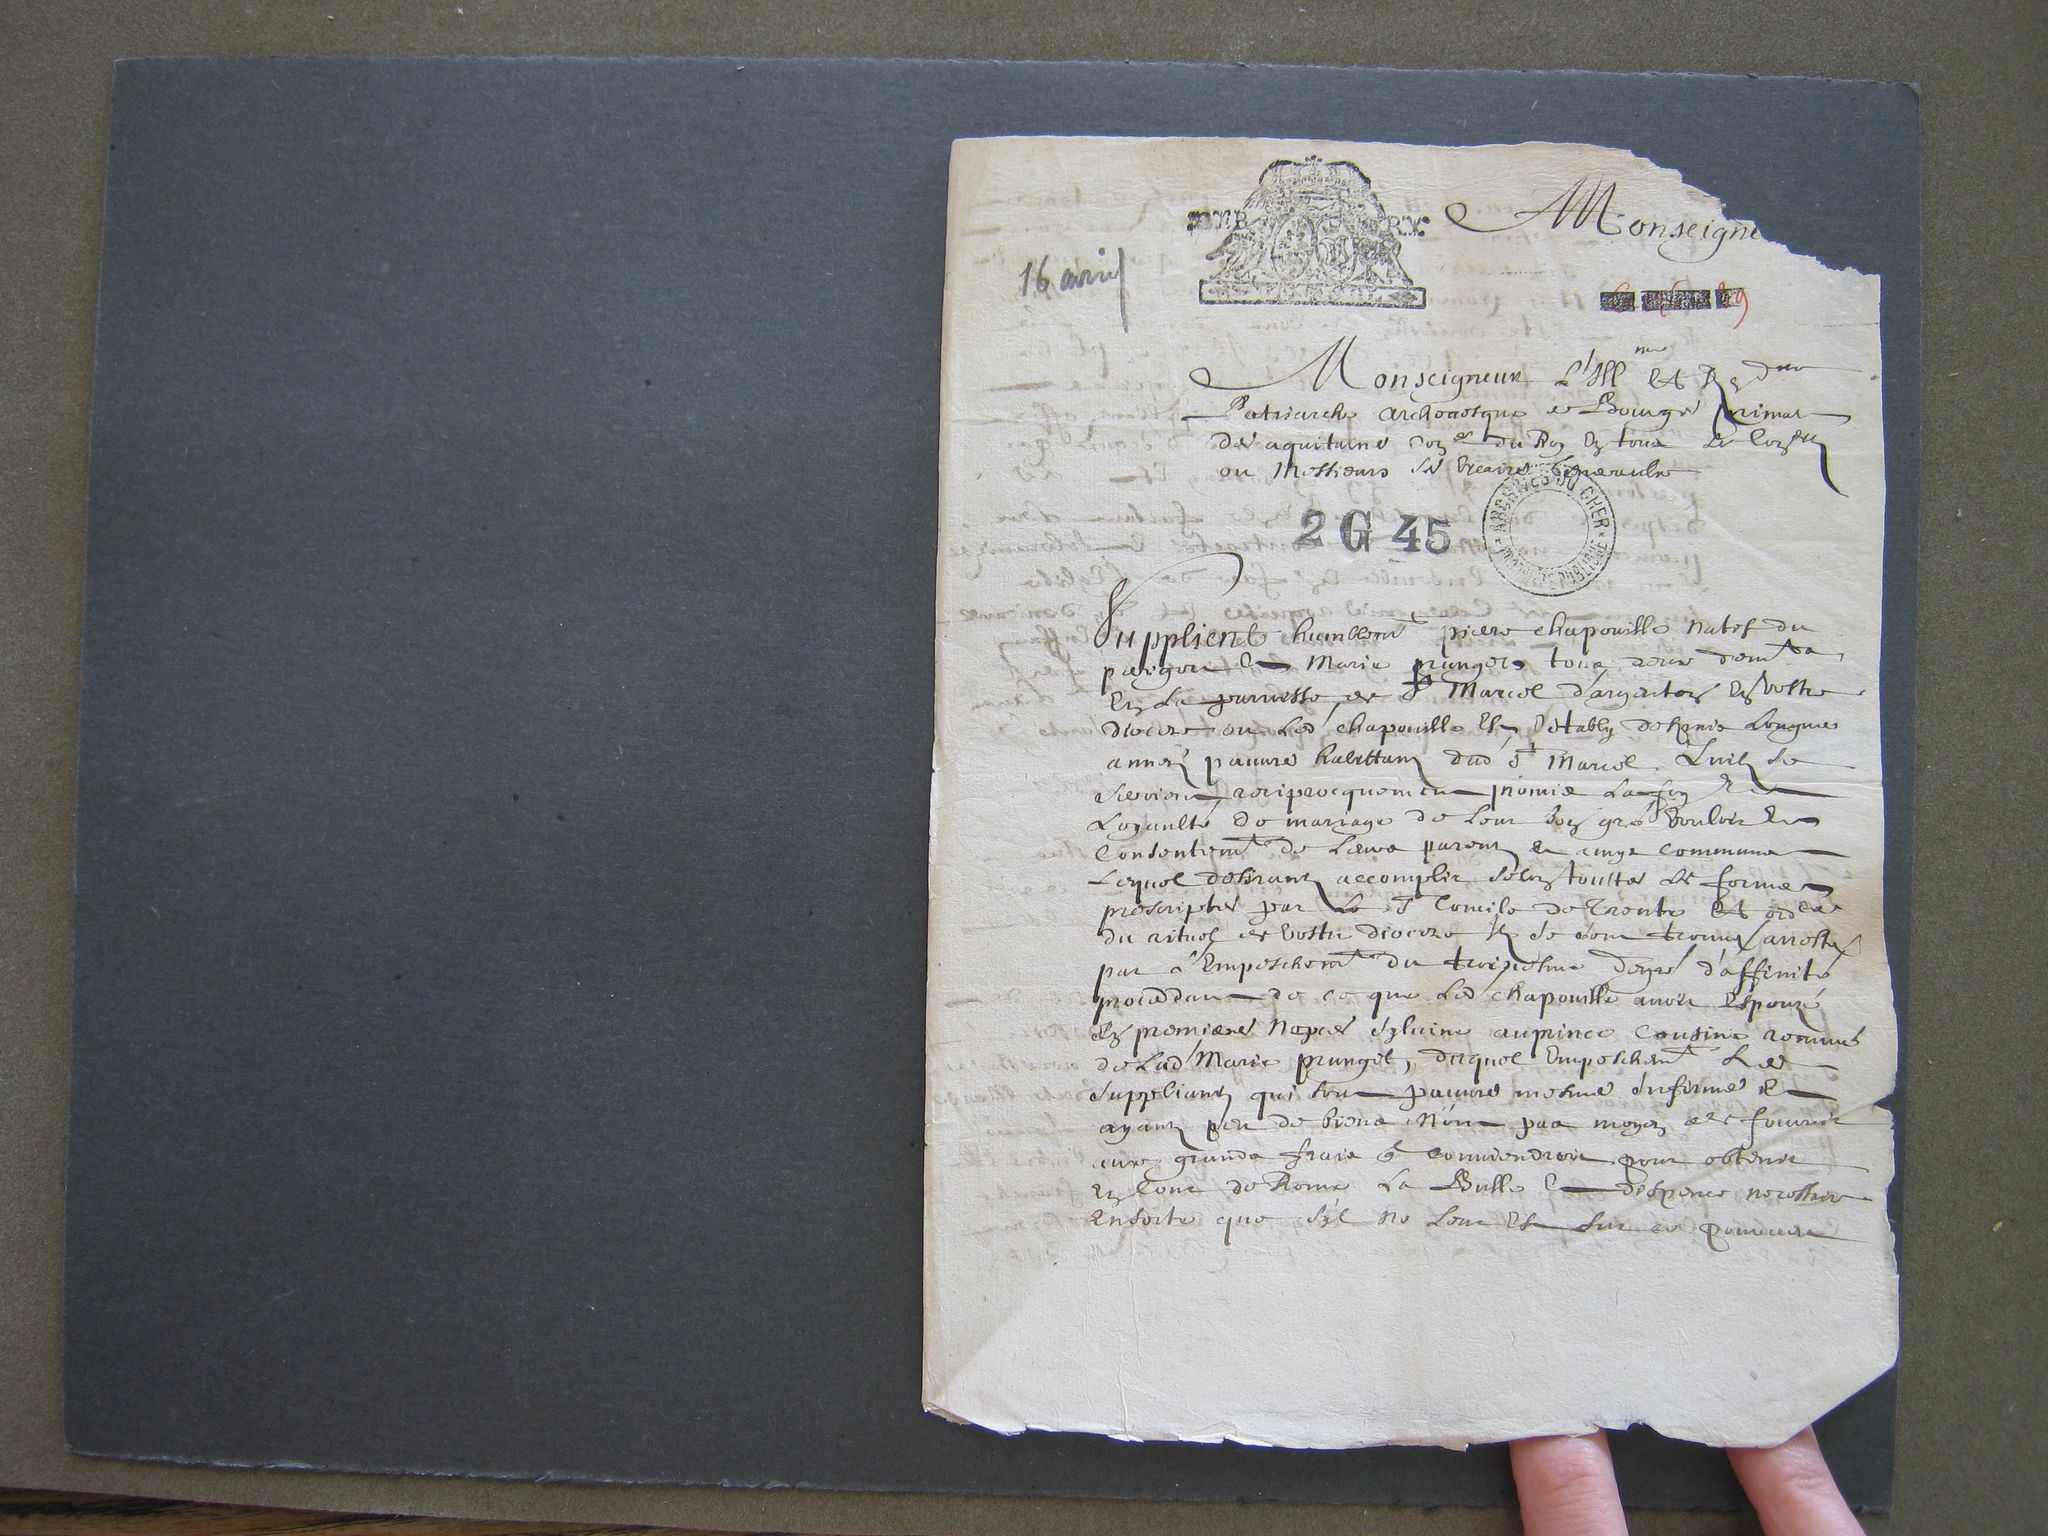 DEB RRY
Monseigne
16 avril
Monseigneur L'Ill me Et R dme
Patriarche archevesque de Bourges Primat
des aquitaines du Roy en tous
ou Messieurs ses Vicaires Generaulx
2 G 45
ARCHIVES DU CHER
PUBLIQUE
Supplient humblemt piere chapouille natif du
perigort & Marie prunget tous deux demts
En La parroisse de St Marcel d'argenton En vostre
diocese ou Led chapouille Est Estably depuis Longues
annes pauvres habittans dud St Marcel, Quilz se
seroient reciprocquement promis La foy Et
Loyaulté de mariage de Leur bon gré vouloir Et
Consentemt de Leurs parens & amys communs
Lequel desirans accomplir selon touttes Les formes
prescriptes par Le St Concile de Trente Et ordces
du rituel de vostre diocese Ilz se sont trouves arrestes
par l'Empeschemt du troisiesme degré d'affinité
procedant de ce que Led chapouille avoit Espouzé
En premieres Nopces sylvine auprince Cousine
de Lad Marie prunget, duquel Empeschemt Les
supplians qui sont pauvres mesme Infirmes Et
ayans peu de biens N'ont pas moyen de fournir
aux grands frais conviendroit pour obtenir
En Cour de Rome La Bulle & dispence necessaire
En sorte que s'yl ne Leur Est sur ce pourveu